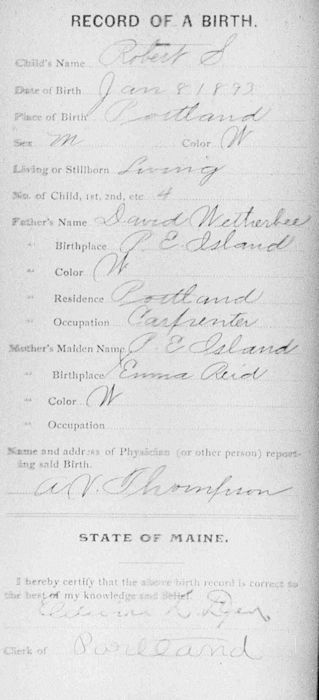 RECORD OF A BIRTH.
Child's Name Robert S
Date of Birth Jan 8 1893
Place of Birth Portland
Sex M Color W
Living or Stillborn Living
No. of Child, 1st, 2nd, etc 4
Father's Name David Wetherbee
" Birthplace P. E. Island
" Color W
" Residence Portland
" Occupation Carpenter
Mother's Maiden Name P. E. Island
" Birthplace Emma Reid
" Color W
" Occupation
Name and address of Physician (or other person) report-
ing said Birth.
A. V. Thompson
STATE OF MAINE.
I hereby certify that the above birth record is correct to
the best of my knowledge and belief.
Dyer
Clerk of Portland